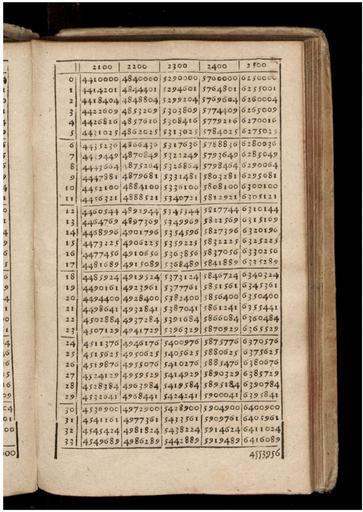 2100 2200 2300 2400 2500
0 4410000 4840000 5290000 5760000 6250000
1 4414201 4844401 5294601 5764801 6255001
2 4418404 4848804 5299204 5769604 6260004
3 4422609 4853209 5303809 5774409 6265009
4 4426816 4857616 5308416 5779216 6270016
5 4431025 4862025 5313025 5784025 6275025
6 4435236 4866436 5317636 5788836 6280036
7 4439449 4870849 5322249 5793649 6285049
8 4443664 4875264 5326864 5798464 6290064
9 4447881 4879681 5331481 5803281 6295081
10 4452100 4884100 5336100 5808100 6300100
11 4456321 4888521 5340721 5812921 6305121
12 4460544 4892944 5345344 5817744 6310144
13 4464769 4897369 5349969 5822569 6315169
14 4468996 4901796 5354596 5827396 6320196
15 4473225 4906225 5359225 5832225 6325225
16 4477456 4910656 5363856 5837056 6330256
17 4481689 4915089 5368489 5841889 6335289
18 4485924 4919524 5373124 5846724 6340324
19 4490161 4923961 5377761 5851561 6345361
20 4494400 4928400 5382400 5856400 6350400
21 4498641 4932841 5387041 5861241 6355441
22 4502884 4937284 5391684 5866084 6360484
23 4507129 4941729 5396329 5870929 6365529
24 4511376 4946176 5400976 5875776 6370576
25 4515625 4950625 5405625 5880625 6375625
26 4519876 4955076 5410276 5885476 6380676
27 4524129 4959529 5414929 5890329 6385729
28 4528384 4963984 5419584 5895184 6390784
29 4532641 4968441 5424241 5900041 6395841
30 4536900 4972900 5428900 5904900 6400900
31 4541161 4977361 5433561 5909761 6405961
32 4545424 4981824 5438224 5914624 6411024
33 4549689 4986289 5442889 5919489 6416089
4553956